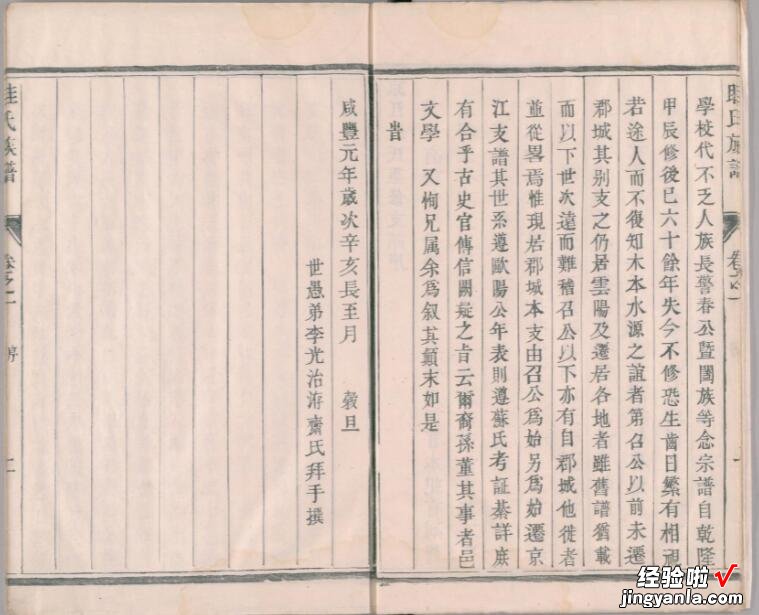 學校代不乏人族長警春公暨闔族等念宗譜自乾隆
甲辰修後已六十餘年失今不修恐生齒日繁有相視
若途人而不復知木本水源之誼者第召公以前未遷
郡城其別支之仍居雲陽及遷居各地者雖舊譜猶載
而以下世次遠而難稽召公以下亦有自郡城他徙者
並從畧焉惟現居郡城本支由召公為始另為始遷京
江支譜其世系遵歐陽公年表則遵蘇氏考証綦詳庶
有合乎古史官傳信闕疑之旨云爾裔孫董其事者邑
文學 又恂兄属余為叙其顛末如是
旹
咸豐元年歲次辛亥長至月 穀旦
世愚弟李光治 齋氏拜手撰
氏族譜
卷之一
序
二
氏族譜
卷之一
经验啦√
jingyanla.com